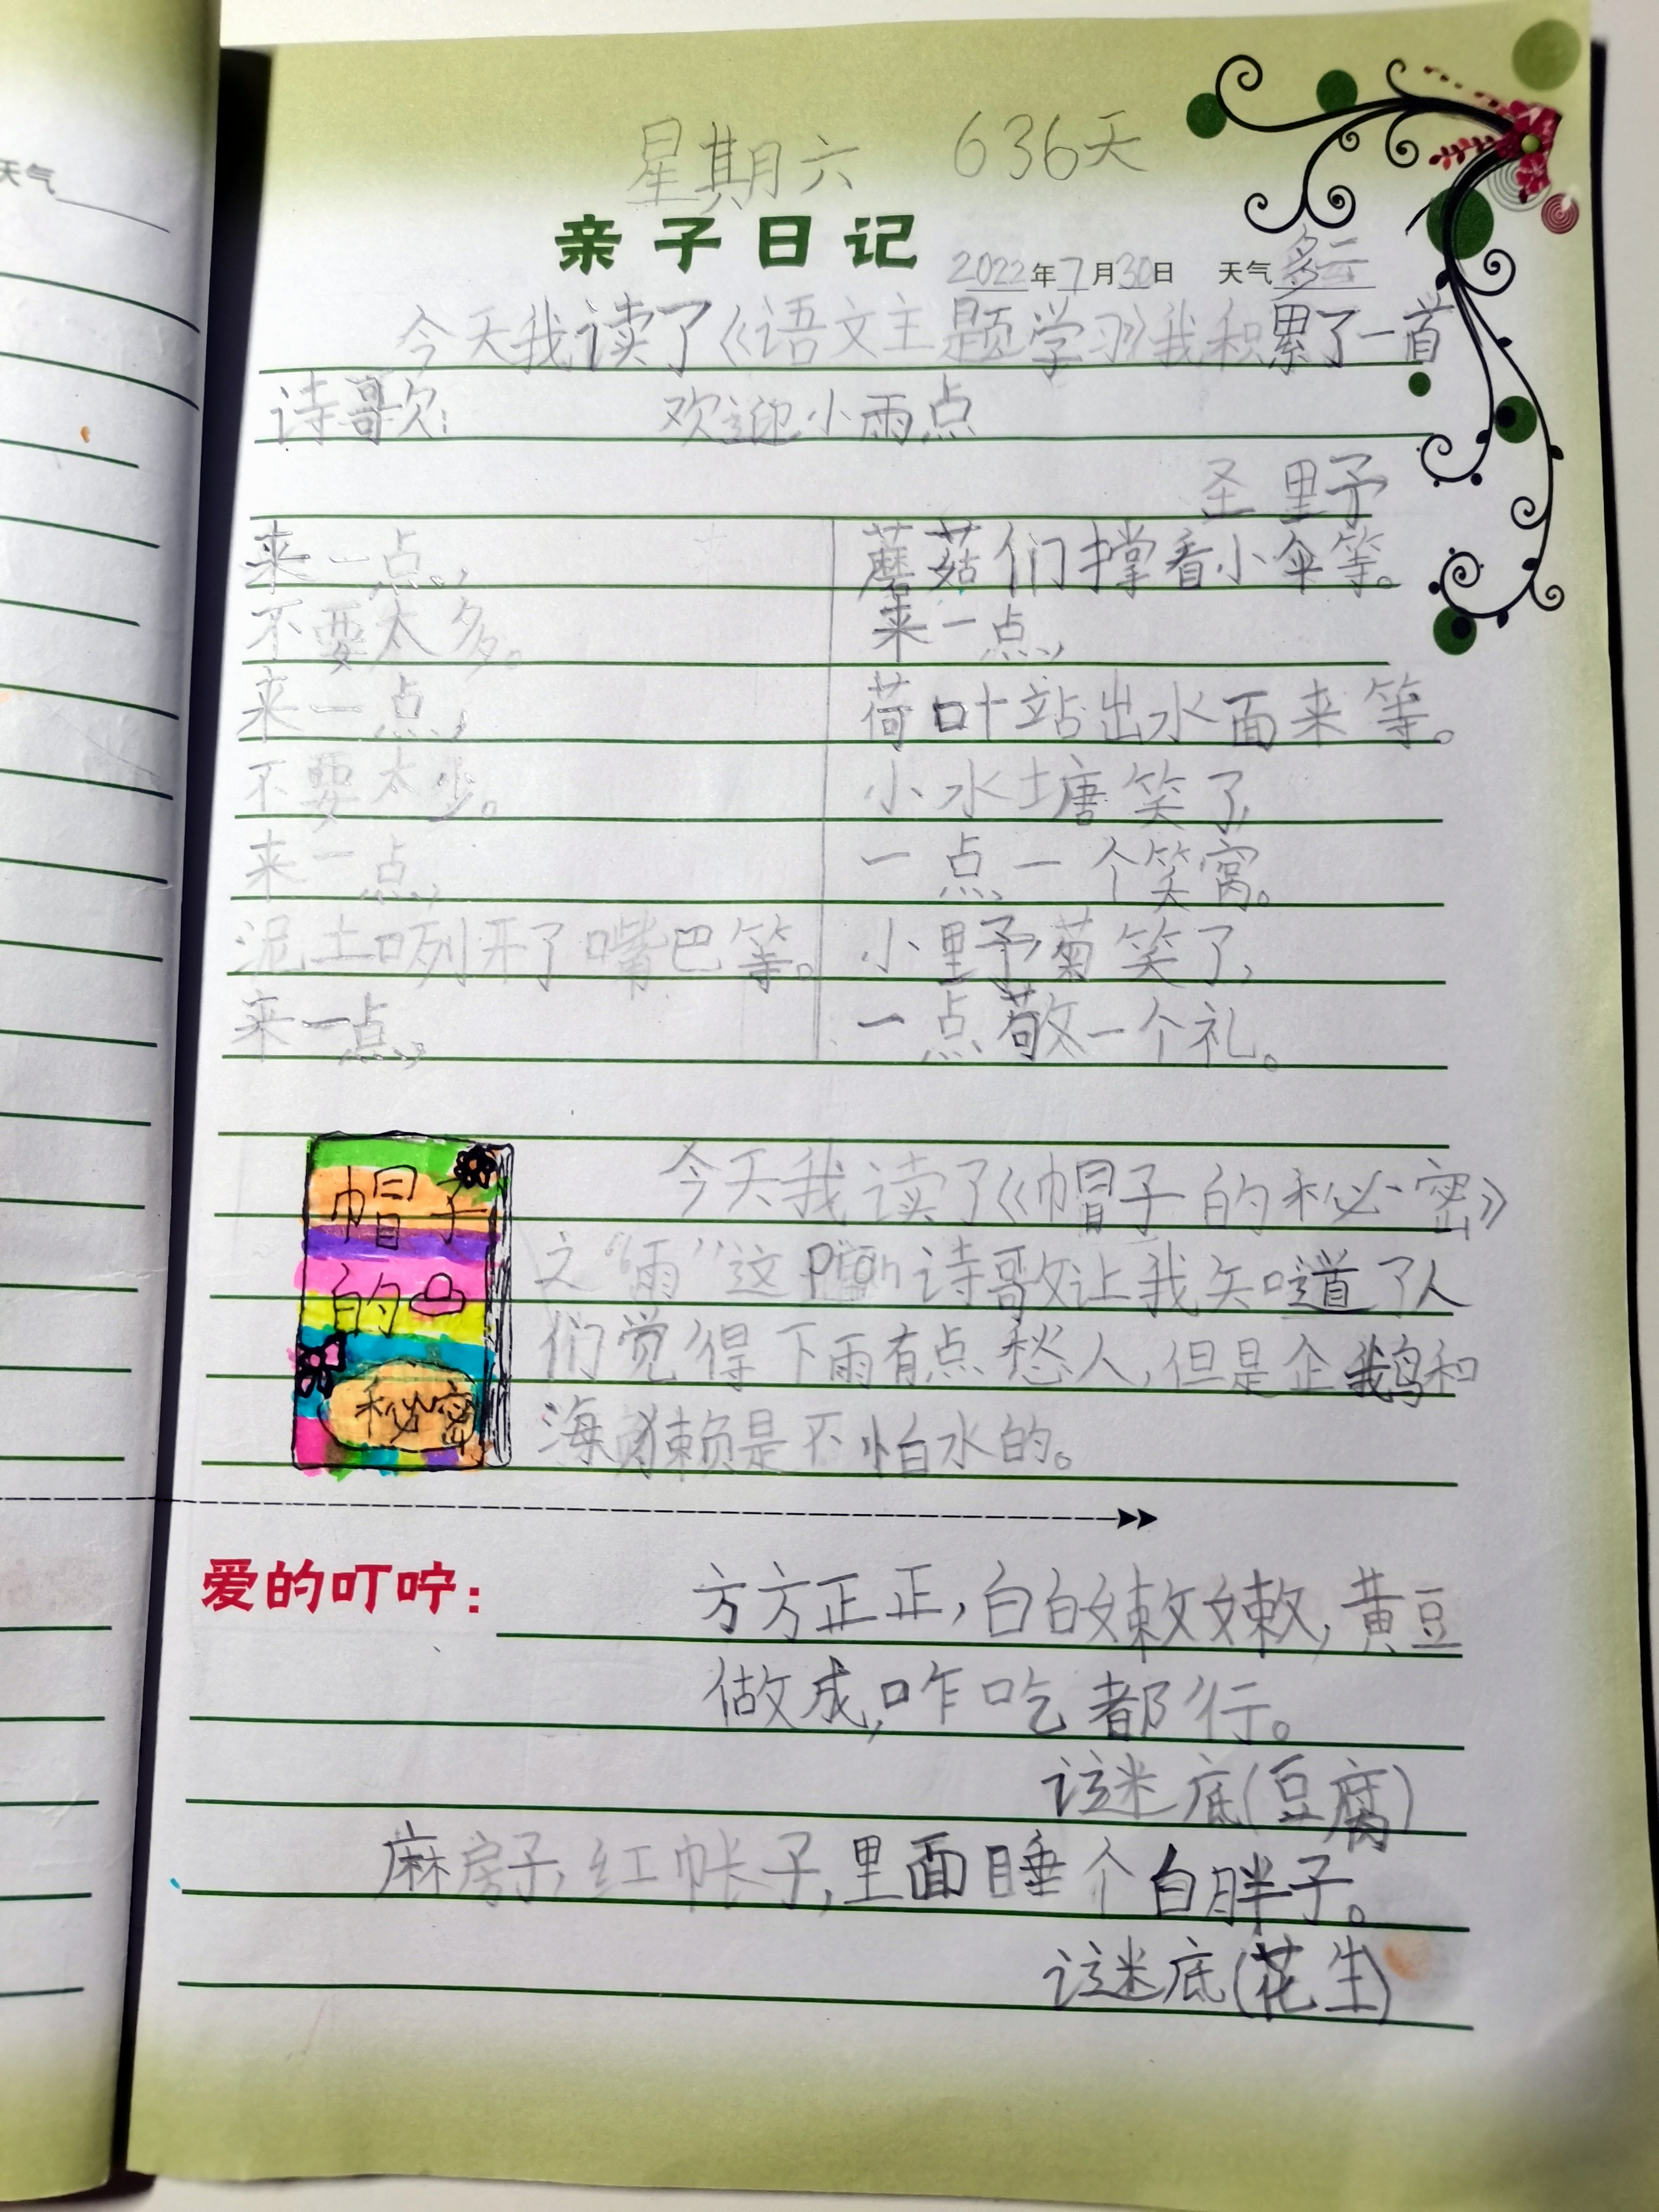 天气
星期六 636天
亲子日记 2022年7月30日 天气多云
今天我读了《语文主题学习》我积累了一首
诗歌:
欢迎小雨点
圣野
来一点,
不要太多。
来一点,
不要太少。
来一点,
泥土咧开了嘴巴等。
来一点,
蘑菇们撑着小伞等。
来一点,
荷叶站出水面来等。
小水塘笑了,
一点一个笑窝。
小野菊笑了,
一点敬一个礼。
帽子
的
秘密
今天我读了《帽子的秘密》
之“雨”这piān诗歌让我知道了人
们觉得下雨有点愁人,但是企鹅和
海獭是不怕水的。
爱的叮咛:
方方正正,白白嫩嫩,黄豆
做成,咋吃都行。
谜底(豆腐)
麻房子,红帐子,里面睡个白胖子。
谜底(花生)